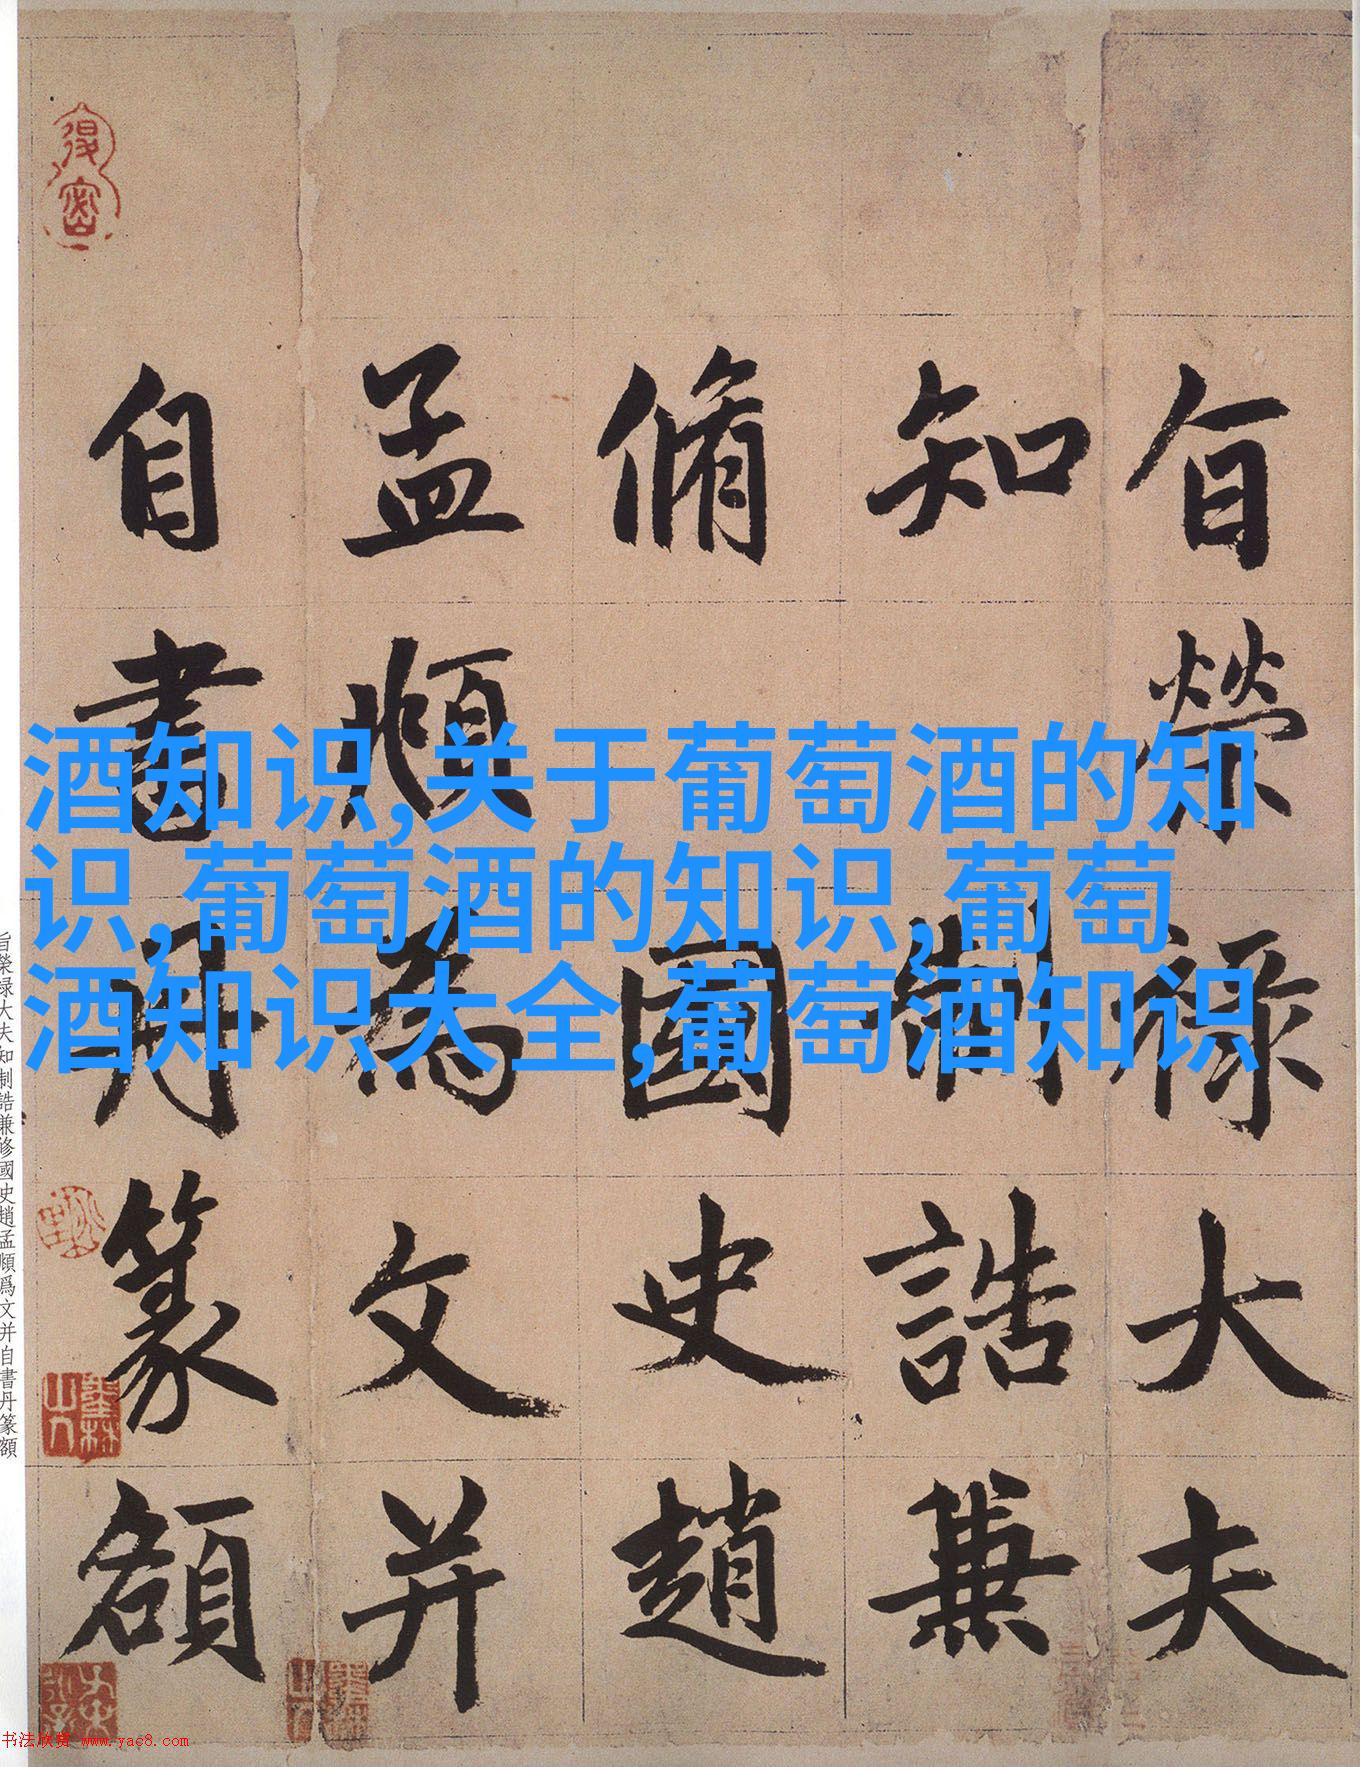 酒知识,关于葡萄酒的知
识,葡萄酒的知识,葡萄
酒知识大全,葡萄酒知识
旨榮祿大夫
知制誥兼
脩國史趙
孟頫為文并
自書丹篆額
旨榮禄大夫知制誥兼修國史趙孟頫爲文并自書丹篆額
书法欣赏 www.yac8.com